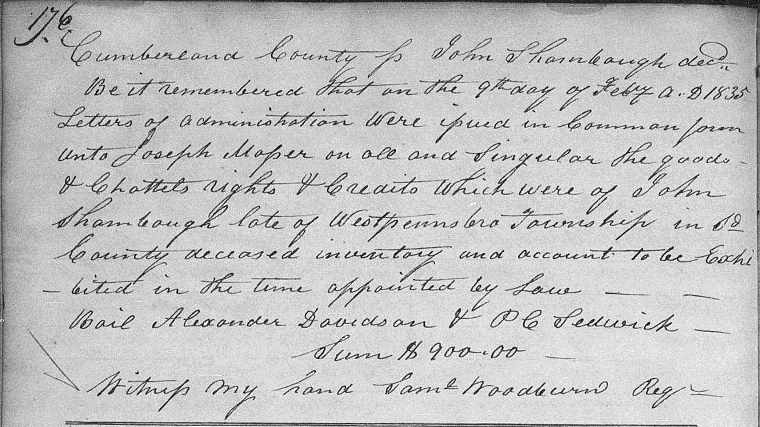 176
Cumberland County ss John Shambaugh decd
Be it remembered that on the 9th day of Feby A. D 1835
Letters of administration were issued in Common form
unto Joseph Mosser on all and Singular the goods
& Chattels rights & Credits which were of John
Shambaugh late of Westpennsbro Township in Sd
County deceased inventory and account to be Exhi
- bited in the time appointed by Law — —
Bail Alexander Davidson & P C Sedwick —
Sum $900.00 —
Witness my hand Saml Woodburn Regr